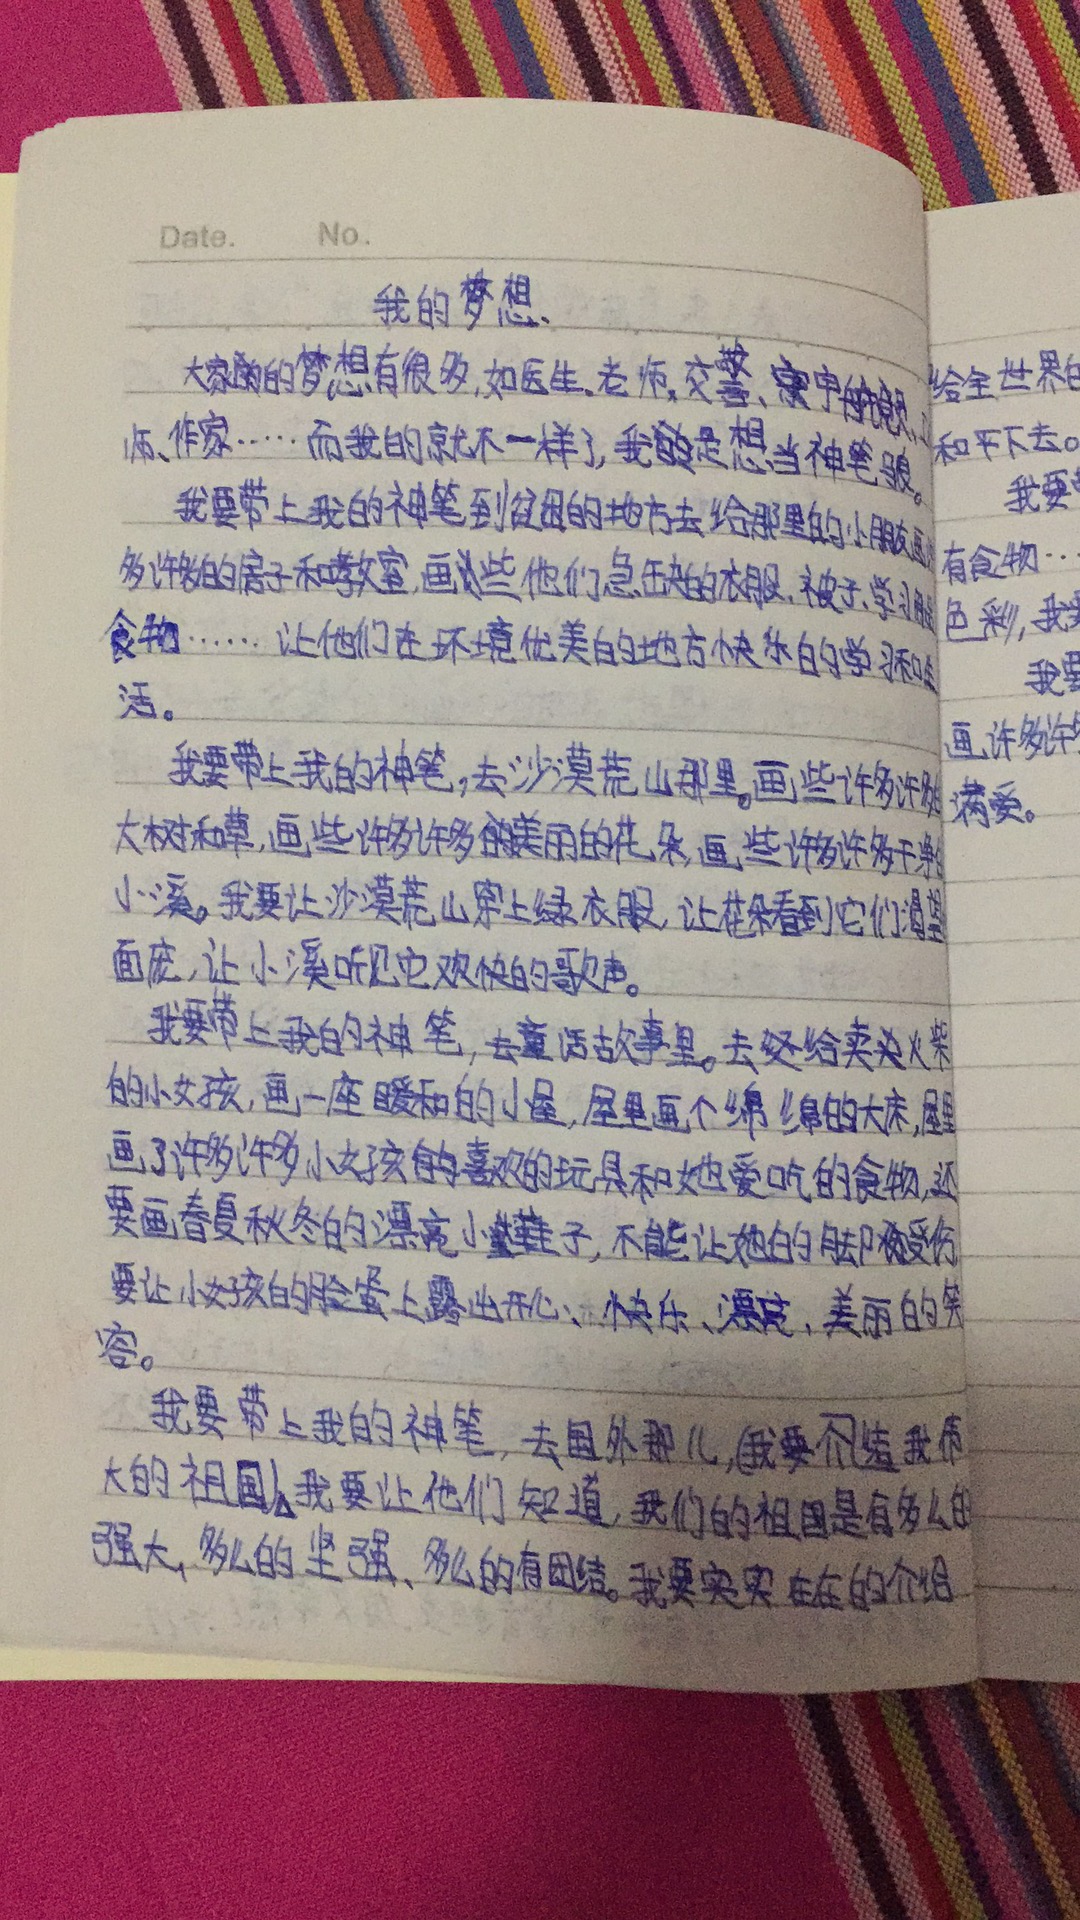 Date. No.
我的梦想、
大家的梦想有很多,如医生、老师、交警、宇航员、
师、作家……而我的就不一样了,我的是想当神笔马良。
我要带上我的神笔到贫困的地方去给那里的小朋友画
多许多的房子和教室,画些他们急缺的衣服、被子、学习用
食物……让他们在环境优美的地方快乐的学习和生
活。
我要带上我的神笔,去沙漠荒山那里。画些许多许多
大树和草,画些许多许多的美丽的花朵,画些许多许多干净
小溪。我要让沙漠荒山穿上绿衣服,让花朵看到它们渴望
面庞,让小溪听见它欢快的歌声。
我要带上我的神笔,去童话故事里。去给卖火柴
的小女孩,画一座暖和的小屋,屋里画个绵绵的大床,屋里
画了许多许多小女孩的喜欢的玩具和她爱吃的食物,还
要画春夏秋冬的漂亮小鞋子,不能让她的脚受伤
要让小女孩的脸蛋上露出开心、快乐、漂亮、美丽的笑
容。
我要带上我的神笔,去国外那儿,(我要介绍我伟
大的祖国)。我要让他们知道,我们的祖国是有多么的
强大,多么的坚强、多么的有团结。我要实实在在的介绍
给全世界的
和平下去。
我要
有食物…
色彩,我
我要
画许多许多
满爱。